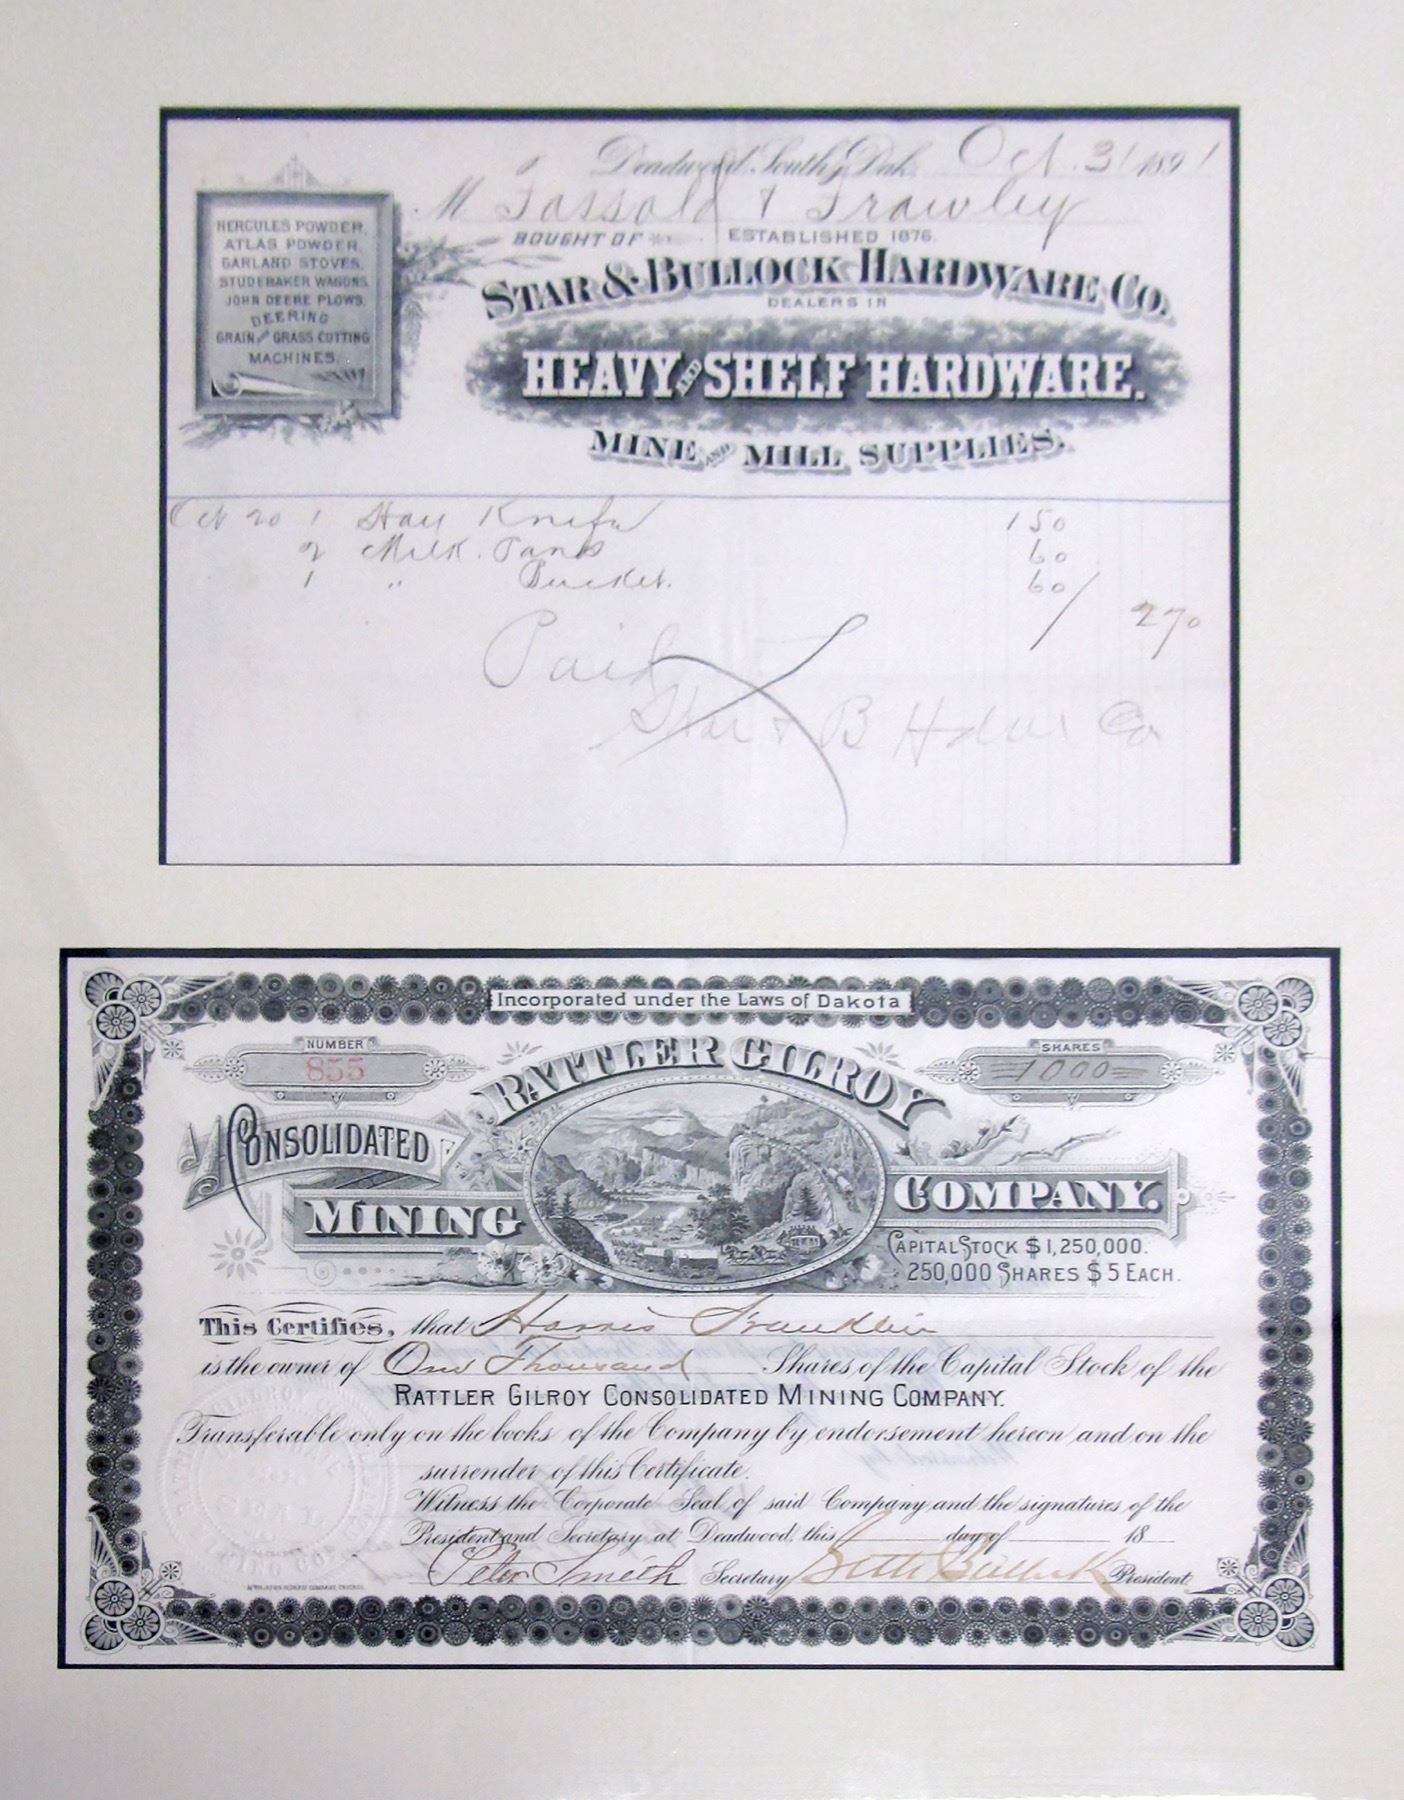 Deadwood, South Dak. Oct. 31 1891
M Fassold & Frawley
BOUGHT OF
ESTABLISHED 1876.
STAR & BULLOCK HARDWARE CO.
DEALERS IN
HEAVY AND SHELF HARDWARE.
MINE AND MILL SUPPLIES.
HERCULES POWDER,
ATLAS POWDER,
GARLAND STOVES,
STUDEBAKER WAGONS,
JOHN DEERE PLOWS,
DEERING
GRAIN AND GRASS CUTTING
MACHINES.
Oct 20 1 Hay Knife 1 50
2 Milk Pans 60
1 " Bucket. 60 / 2 70
Paid
Star & B Hdw Co
Incorporated under the Laws of Dakota
NUMBER
855
SHARES
1000
RATTLER GILROY
CONSOLIDATED
MINING COMPANY.
CAPITAL STOCK $1,250,000.
250,000 SHARES $5 EACH.
This Certifies, that Harris Franklin
is the owner of One Thousand Shares of the Capital Stock of the
RATTLER GILROY CONSOLIDATED MINING COMPANY.
Transferable only on the books of the Company by endorsement hereon and on the
surrender of this Certificate.
Witness the Corporate Seal of said Company and the signatures of the
President and Secretary at Deadwood, this day of 18
Peter Smith Secretary Seth Bullock President.
SEAL